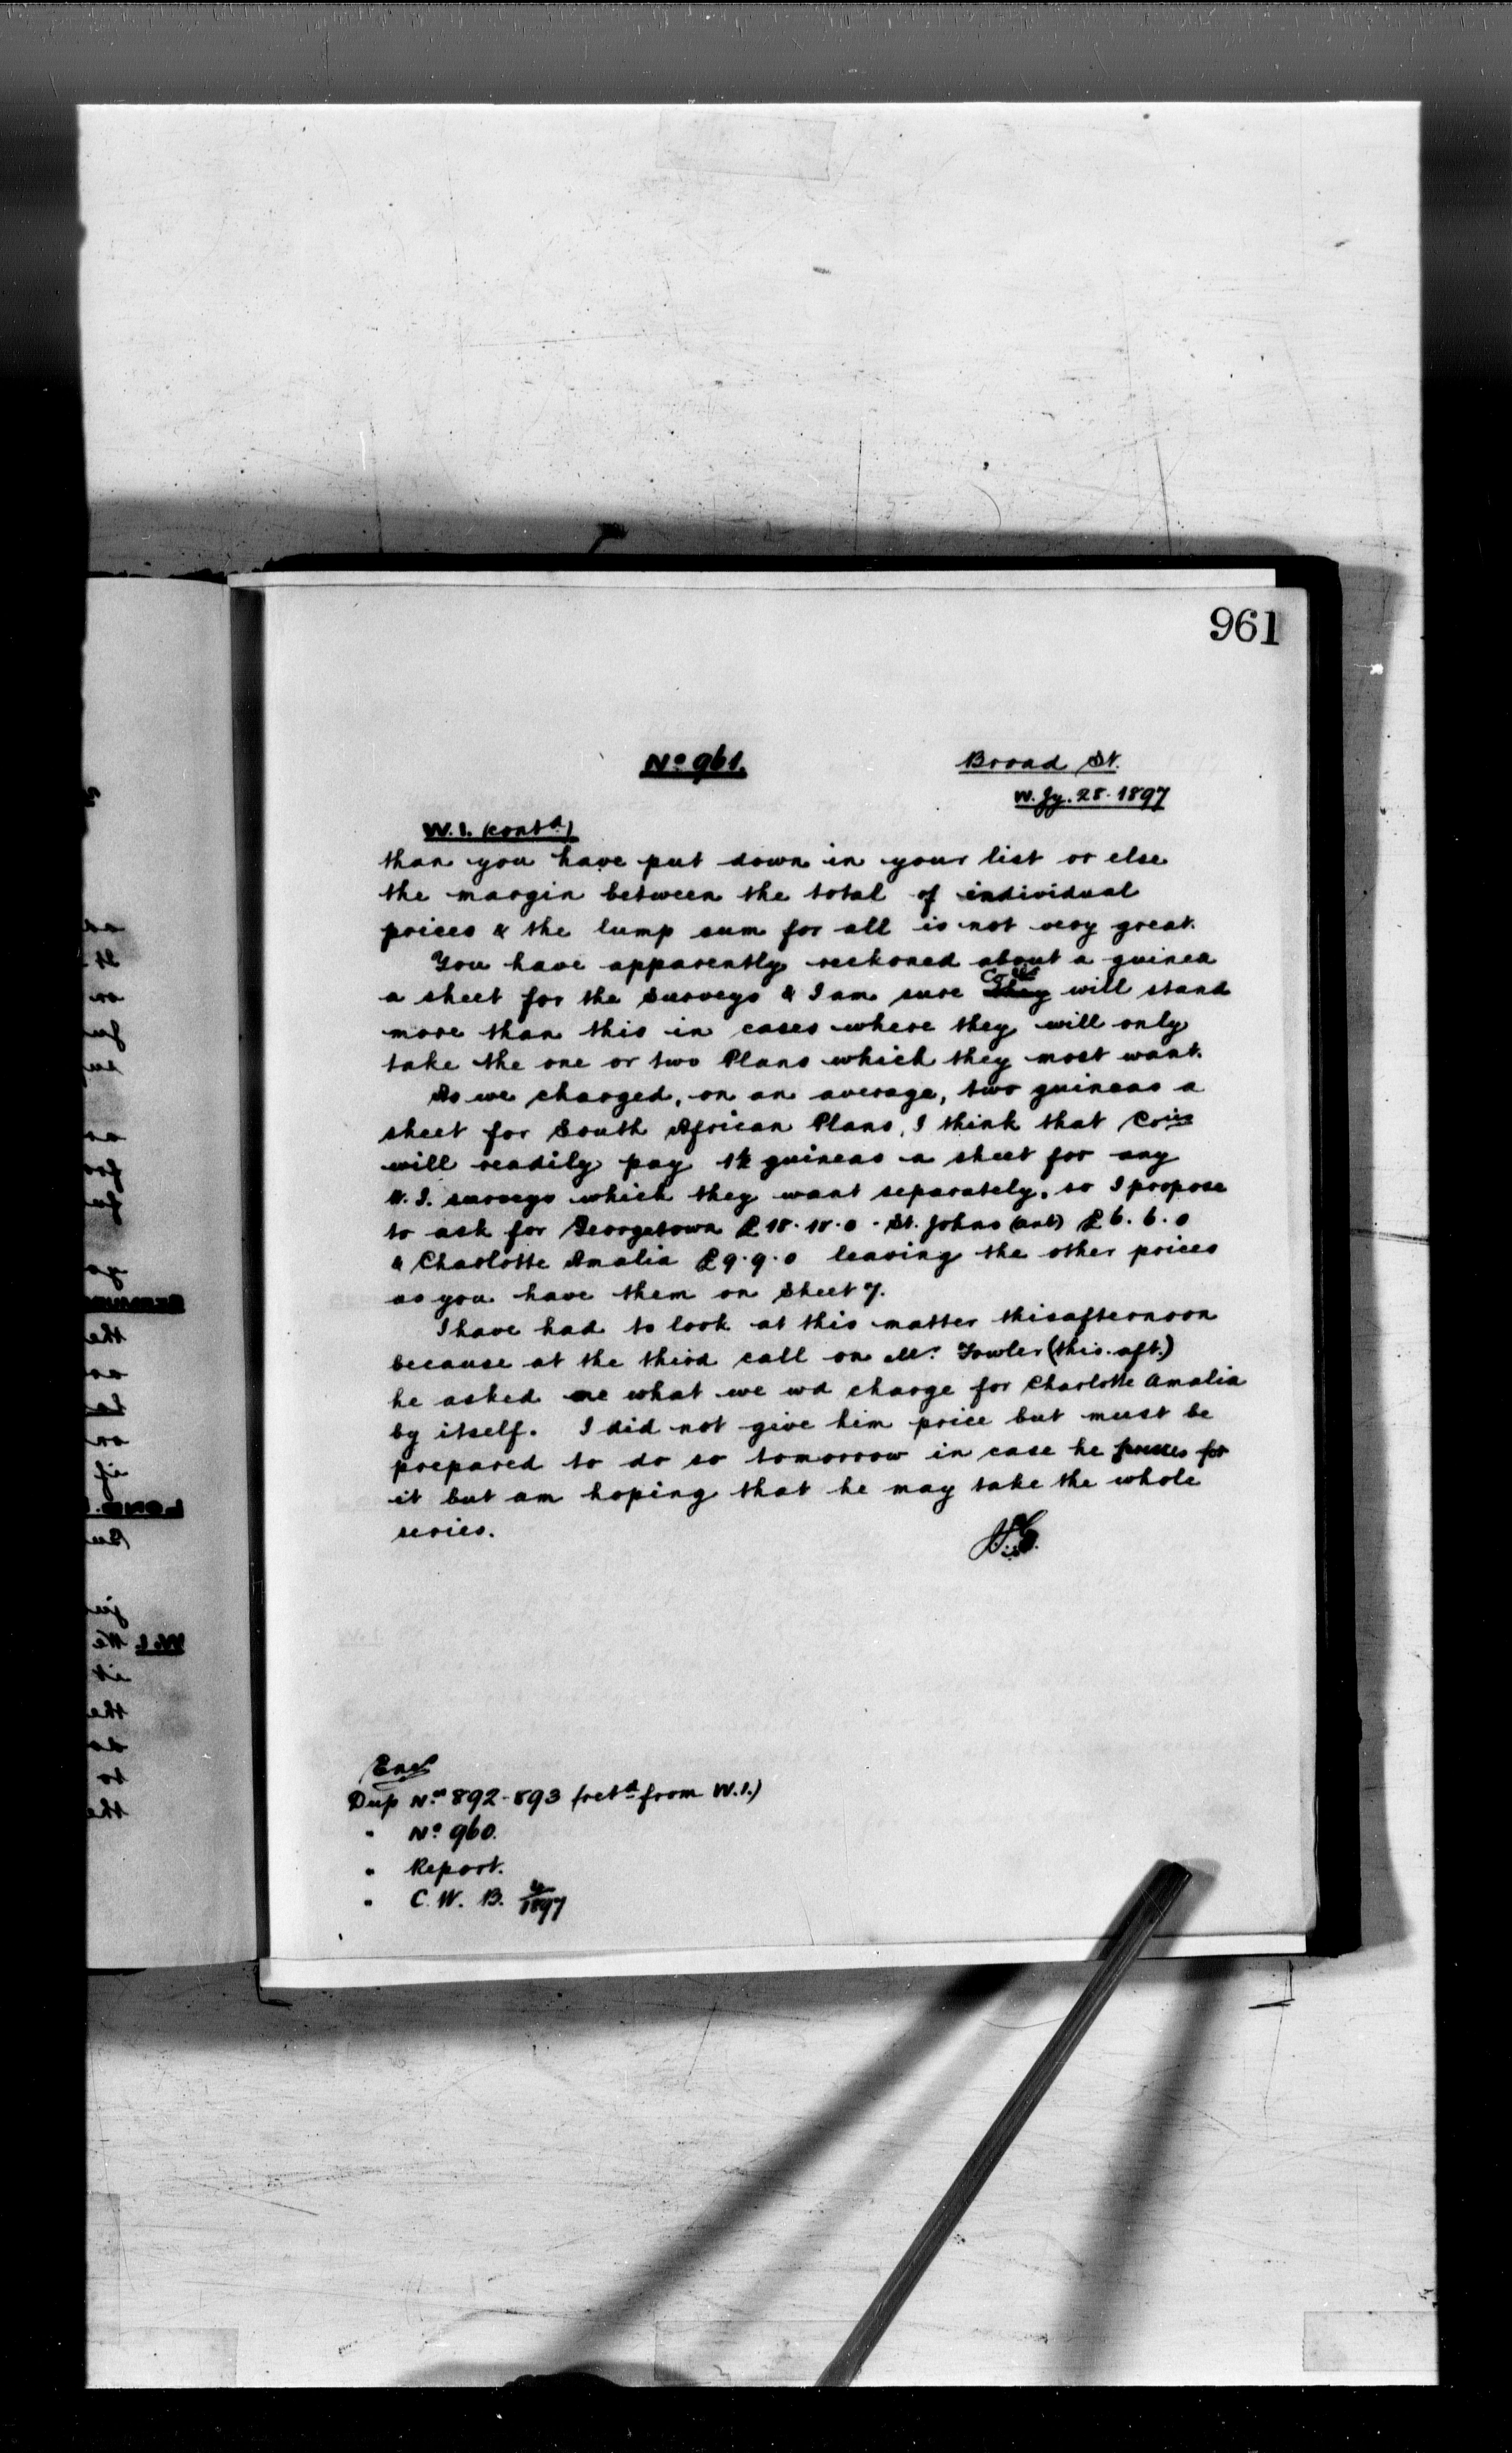 961
No 961.
Broad St.
W. Jy. 28. 1897
W.I. (contd)
than you have put down in your list or else
the margin between the total of individual
prices & the lump sum for all is not very great.
You have apparently reckoned about a guinea
a sheet for the Surveys & I am sure Cois will stand
more than this in cases where they will only
take the one or two Plans which they most want.
As we charged, on an average, two guineas a
sheet for South African Plans, I think that Cois
will readily pay 1½ guineas a sheet for any
W.I. surveys which they want separately, so I propose
to ask for Georgetown £18.18.0 - St. Johns (ant) £6.6.0
& Charlotte Amalia £9.9.0 leaving the other prices
as you have them on Sheet 7.
I have had to look at this matter this afternoon
because at the third call on Mr. Fowler (this aft.)
he asked me what we wd charge for Charlotte Amalia
by itself. I did not give him price but must be
prepared to do so tomorrow in case he pushes for
it but am hoping that he may take the whole
series.
Encs
Dup Nos 892-893 (retd from W.I.)
" No 960.
" Report.
" C. W. B. 4/1897